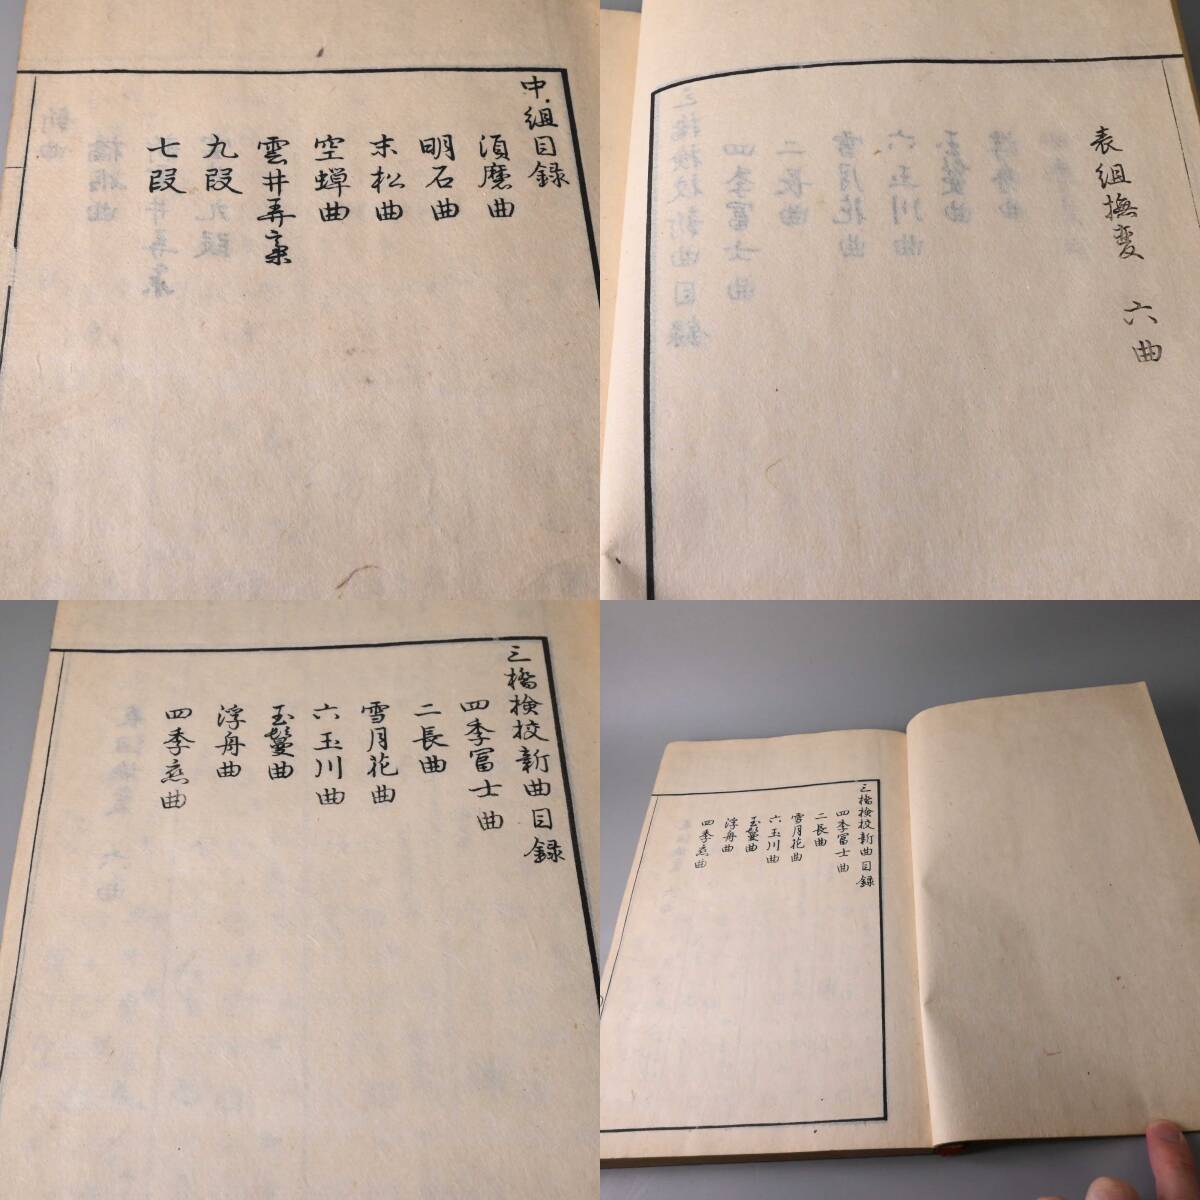 中組目録
須磨曲
明石曲
末松曲
空蝉曲
雲井弄斎
九段
七段
表組撫変 六曲
三橋検校新曲目録
四季冨士曲
二長曲
雪月花曲
六玉川曲
玉鬘曲
浮舟曲
四季恋曲
三橋検校新曲目録
四季冨士曲
二長曲
雪月花曲
六玉川曲
玉鬘曲
浮舟曲
四季恋曲